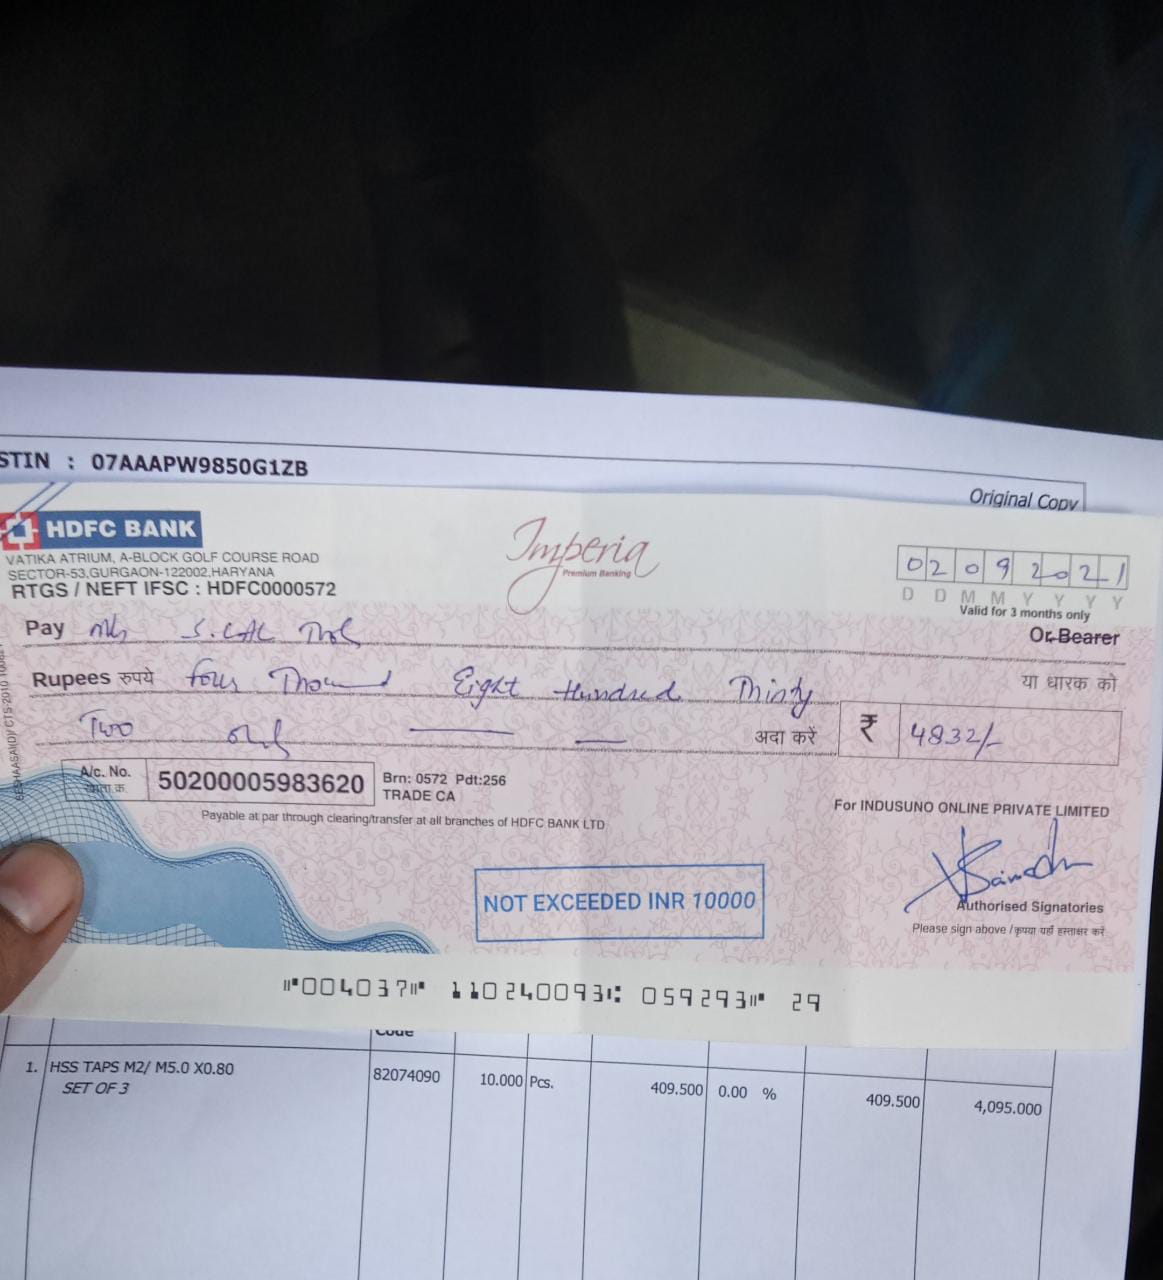 STIN : 07AAAPW9850G1ZB
Original Copy
HDFC BANK
VATIKA ATRIUM, A-BLOCK GOLF COURSE ROAD
SECTOR-53,GURGAON-122002,HARYANA
RTGS / NEFT IFSC : HDFC0000572
Imperia
Premium Banking
02092021
D D M M Y Y Y Y
Valid for 3 months only
Pay
Or Bearer
Rupees रुपये Four Thousand Eight Hundred Thirty
या धारक को
Two only
अदा करें
₹ 4832/-
A/c. No.
खाता क्र.
50200005983620
Brn: 0572 Pdt:256
TRADE CA
Payable at par through clearing/transfer at all branches of HDFC BANK LTD
For INDUSUNO ONLINE PRIVATE LIMITED
NOT EXCEEDED INR 10000
Authorised Signatories
Please sign above / कृपया यहाँ हस्ताक्षर करें
⑈004037⑈ 110240093⑆ 059293⑈ 29
Code
1. HSS TAPS M2/ M5.0 X0.80 82074090 10.000 Pcs. 409.500 0.00 % 409.500 4,095.000
SET OF 3